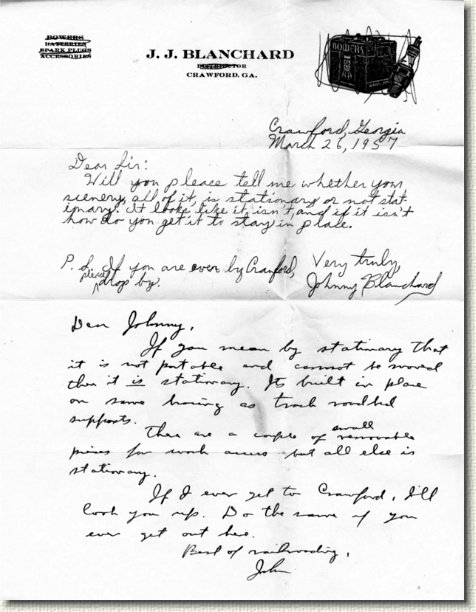 BOWERS
BATTERIES
SPARK PLUGS
ACCESSORIES
J. J. BLANCHARD
DISTRIBUTOR
CRAWFORD, GA.
BOWERS
Crawford, Georgia
March 26, 1957
Dear Sir:
Will you please tell me whether your
scenery, all of it, is stationary or not stat-
ionary. It looks like it isn't and if it isn't
how do you get it to stay in place.
Very truly,
Johnny Blanchard
P. S. If you are ever by Crawford,
please drop by.
Dear Johnny,
If you mean by stationary that
it is not portable and cannot be moved
then it is stationary. Its built in place
on same as track roadbed
supports.
There are a couple of small removable
pieces for work access but all else is
stationary.
If I ever get to Crawford, I'll
look you up. Do the same if you
ever get out here.
Best of railroading,
John